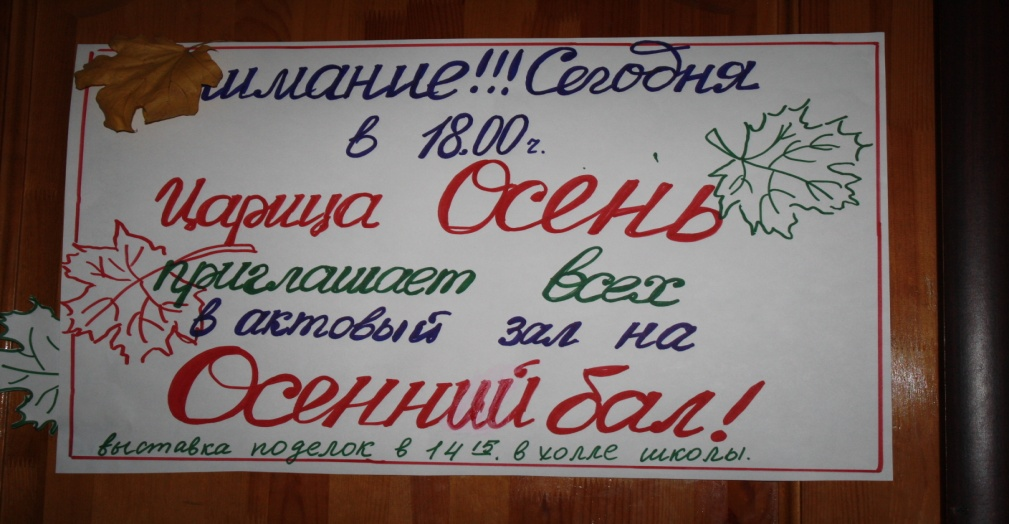 Внимание!!! Сегодня
в 18.00 ч.
Царица Осень
приглашает всех
в актовый зал на
Осенний бал!
выставка поделок в 14 15. в холле школы.